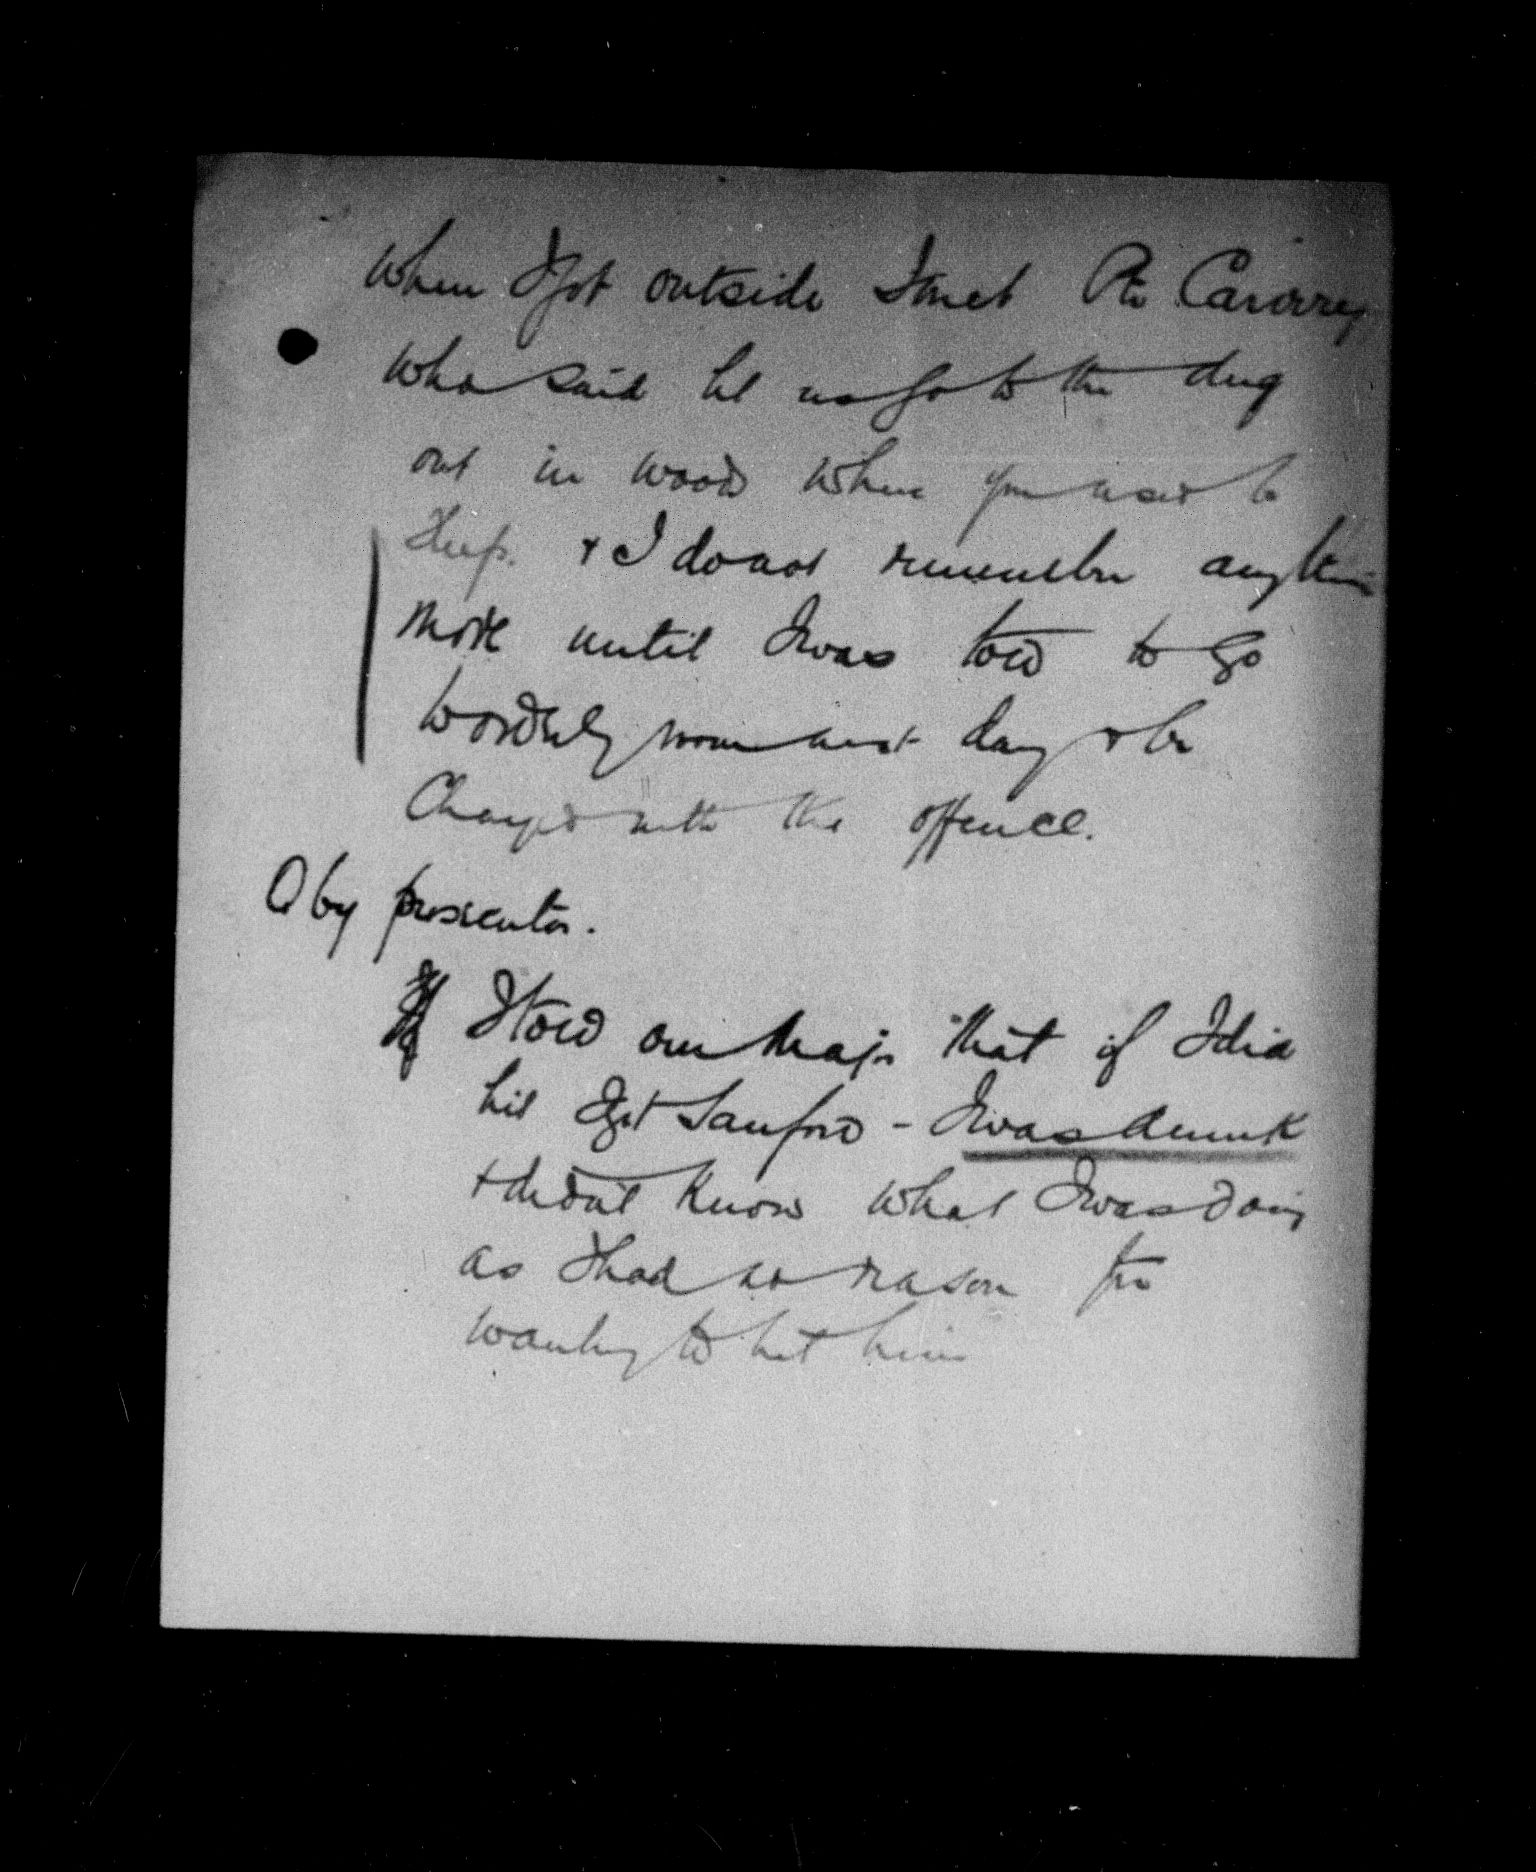 When I got outside I met Pte
who said let us go to the dug
out in wood where you used to
sleep. & I do not remember anything
more until I was told to go
to orderly room next day & be
Charged with the offence.
Q by prosecutor.
I told our Major that if I did
hit Sgt Sanford - I was drunk
& didn't know what I was doing
as I had no reason for
wanting to hit him